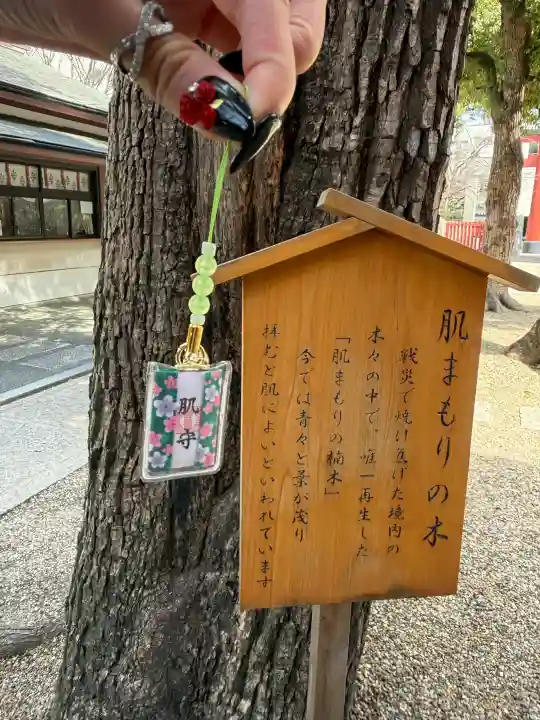 肌まもりの木
戦災で焼け焦げた境内の
木々の中で、唯一再生した
「肌まもりの楠木」
今では青々と葉が茂り
拝むと肌によいといわれています
肌守